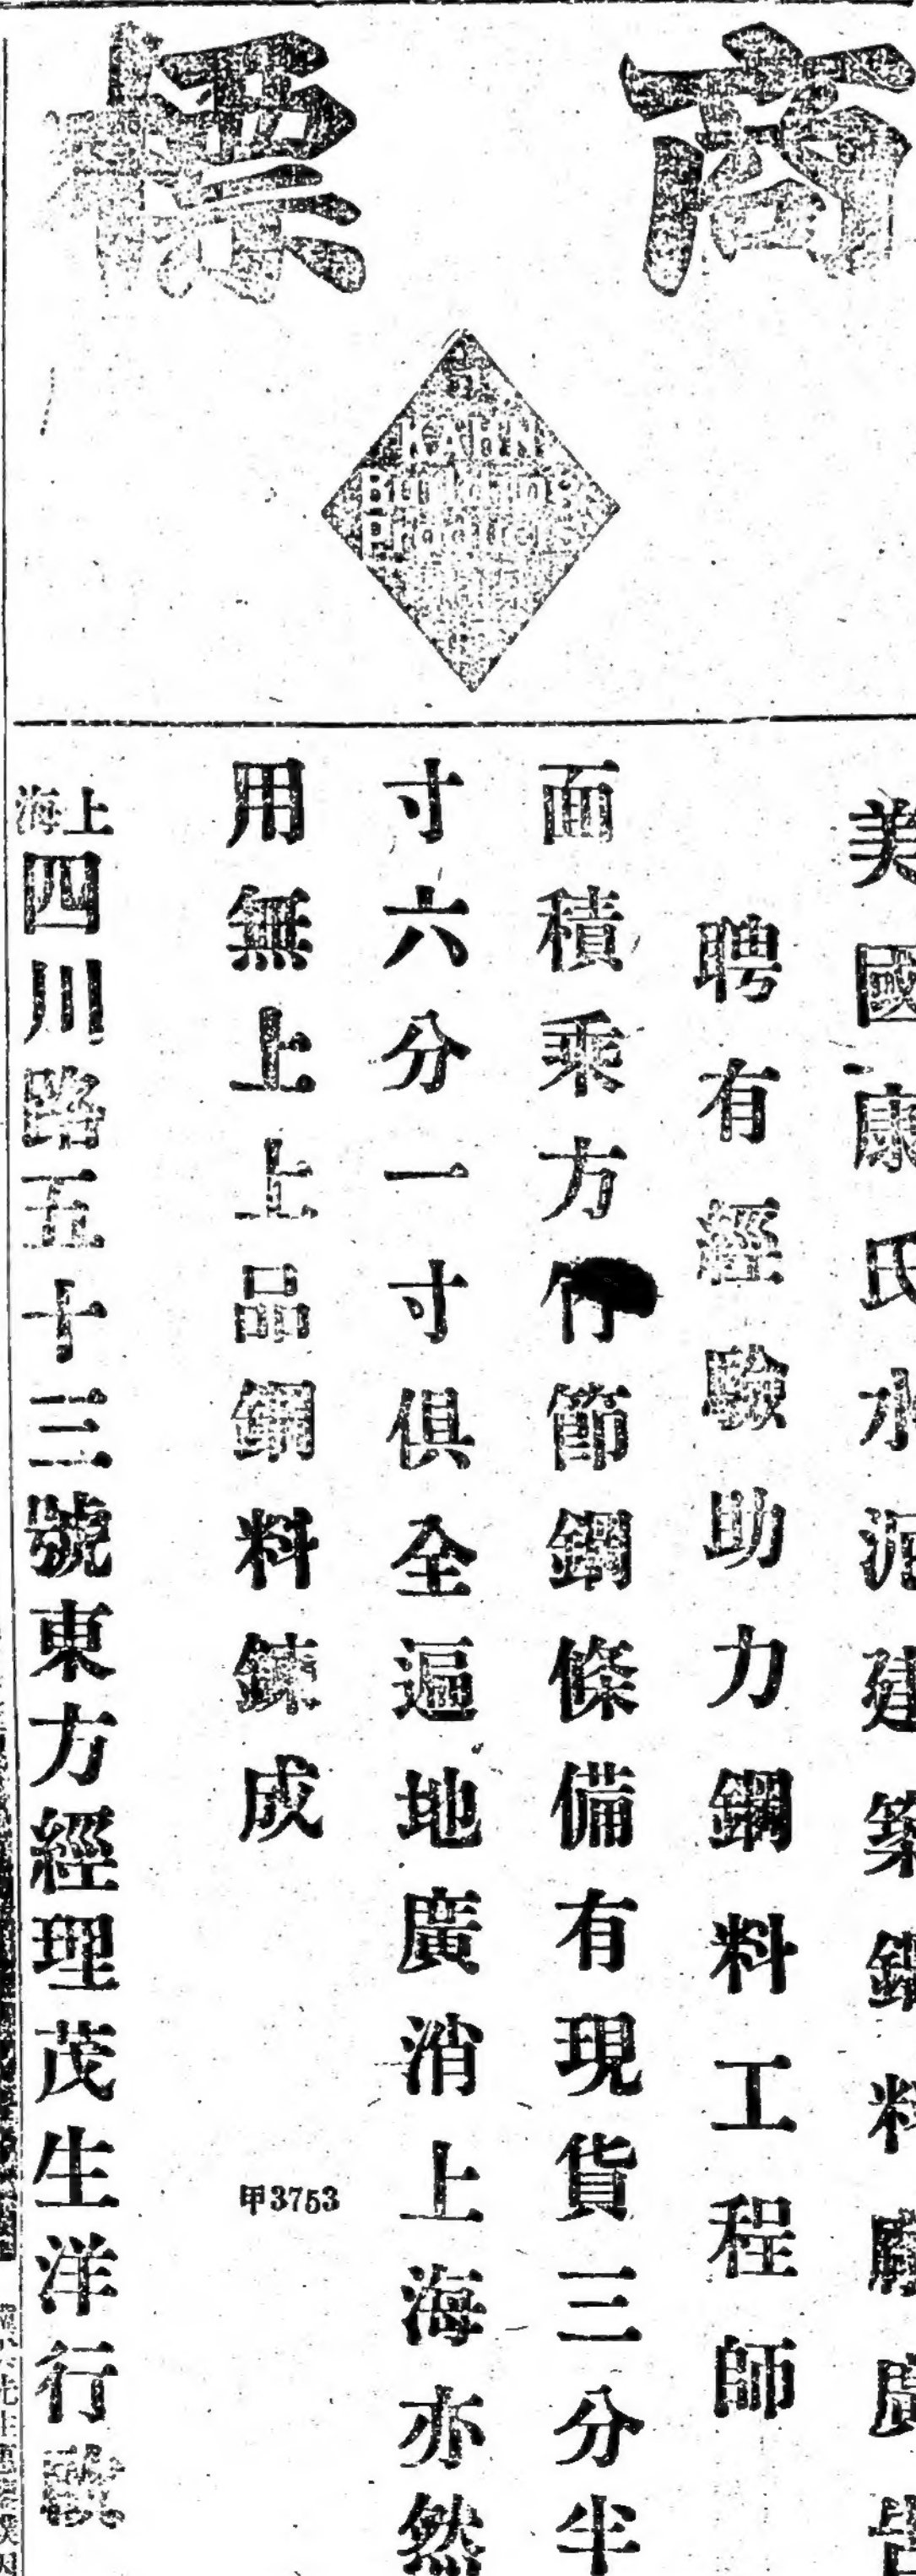 商標
KAHN
Building
Products
美國康氏水泥建築鋼料廠廣告
聘有經驗助力鋼料工程師
面積乘方竹節鋼條備有現貨三分半
寸六分一寸俱全遍地廣消上海亦然
用無上上品鋼料鍊成
甲3753
上海四川路五十三號東方經理茂生洋行啟